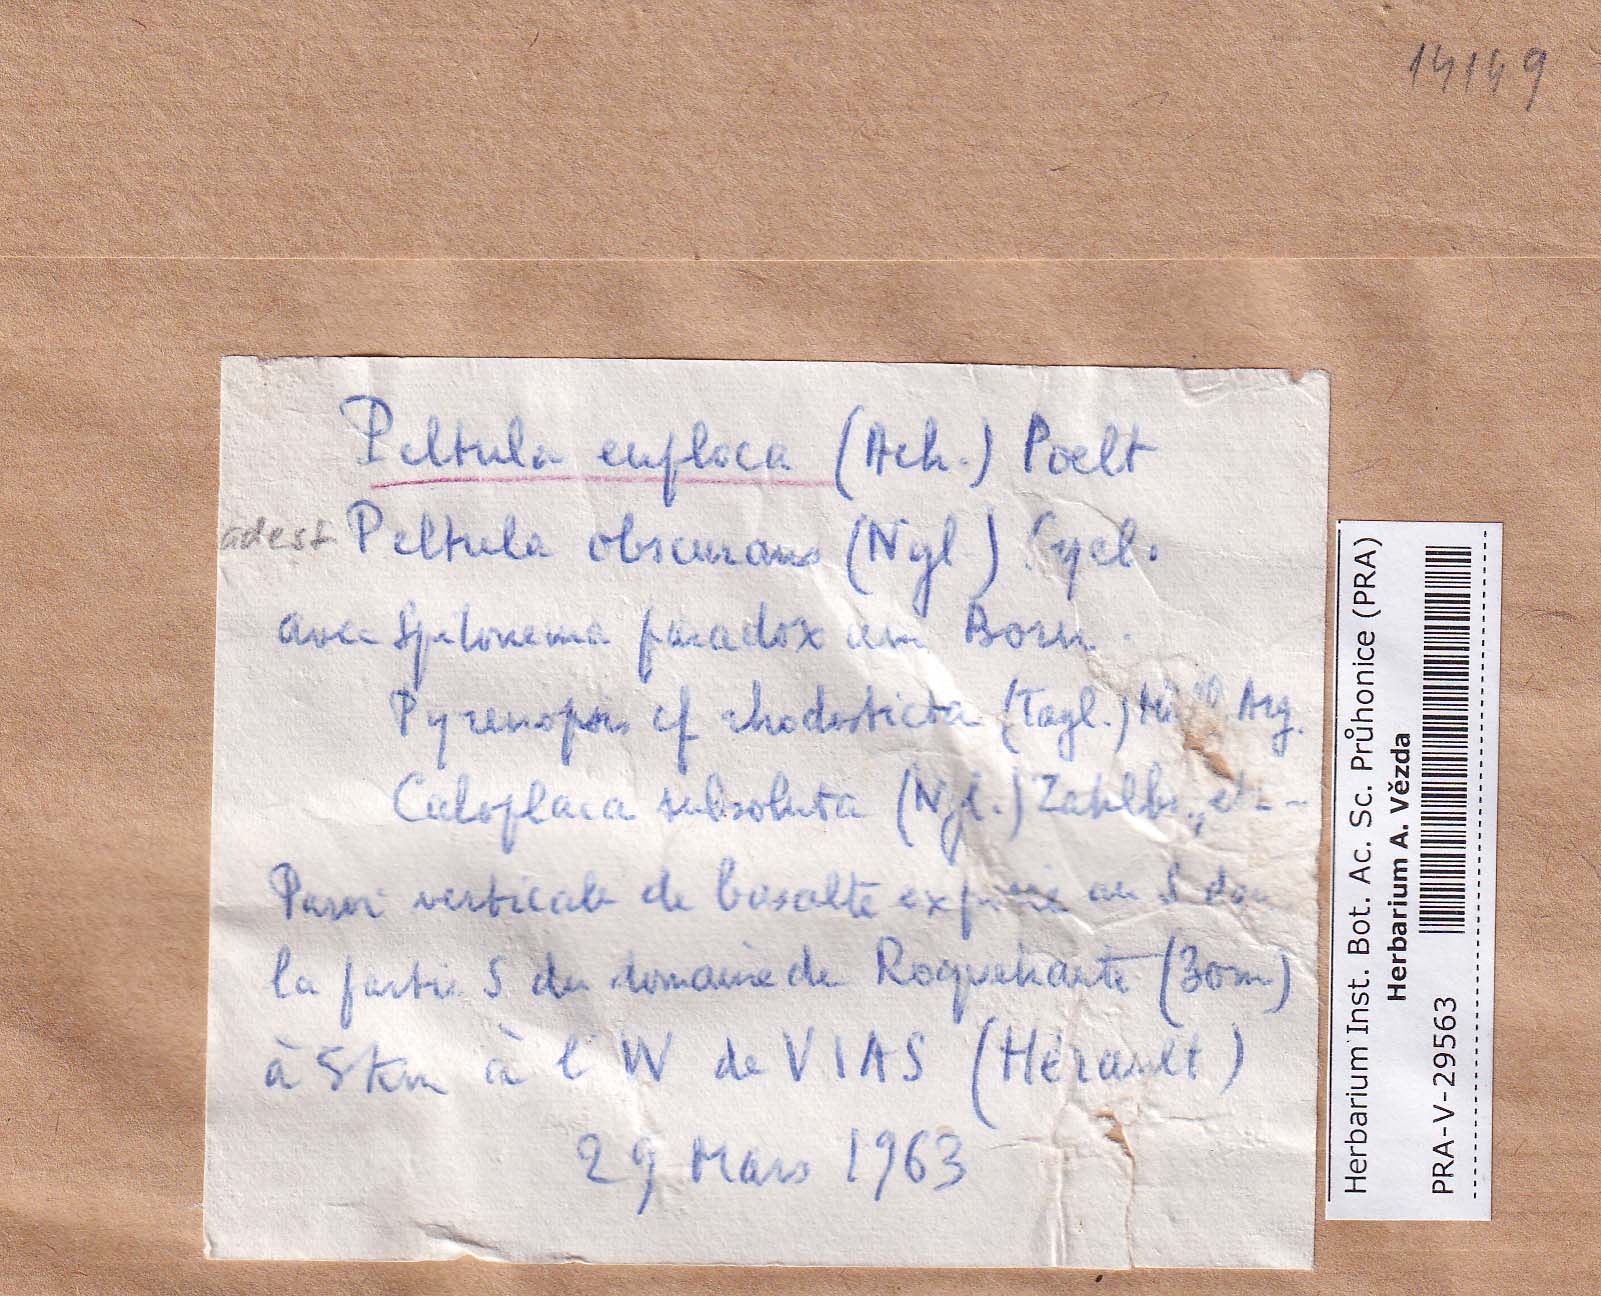 14149
Peltula euploca (Ach.) Poelt
adest Peltula obscurans (Nyl.) Gyel.
avec Spilonema paradoxum Born.
Pyrenopsis cf rhodosticta (Tayl.) Müll. Arg.
Caloplaca subsoluta (Nyl.) Zahlbr., etc
Paroi verticale de basalte exposée au S dans
la partie S du domaine de Roquehaute (30m)
à 5 km à l'W de VIAS (Hérault)
29 Mars 1963
Herbarium Inst. Bot. Ac. Sc. Průhonice (PRA)
Herbarium A. Vězda
PRA-V-29563